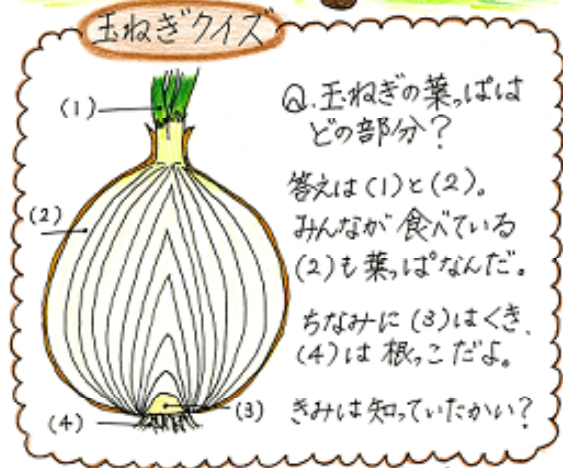 玉ねぎクイズ
Q.玉ねぎの葉っぱは
どの部分？
答えは(1)と(2)。
みんなが食べている
(2)も葉っぱなんだ。
ちなみに(3)はくき、
(4)は根っこだよ。
きみは知っていたかい？
(1)
(2)
(3)
(4)